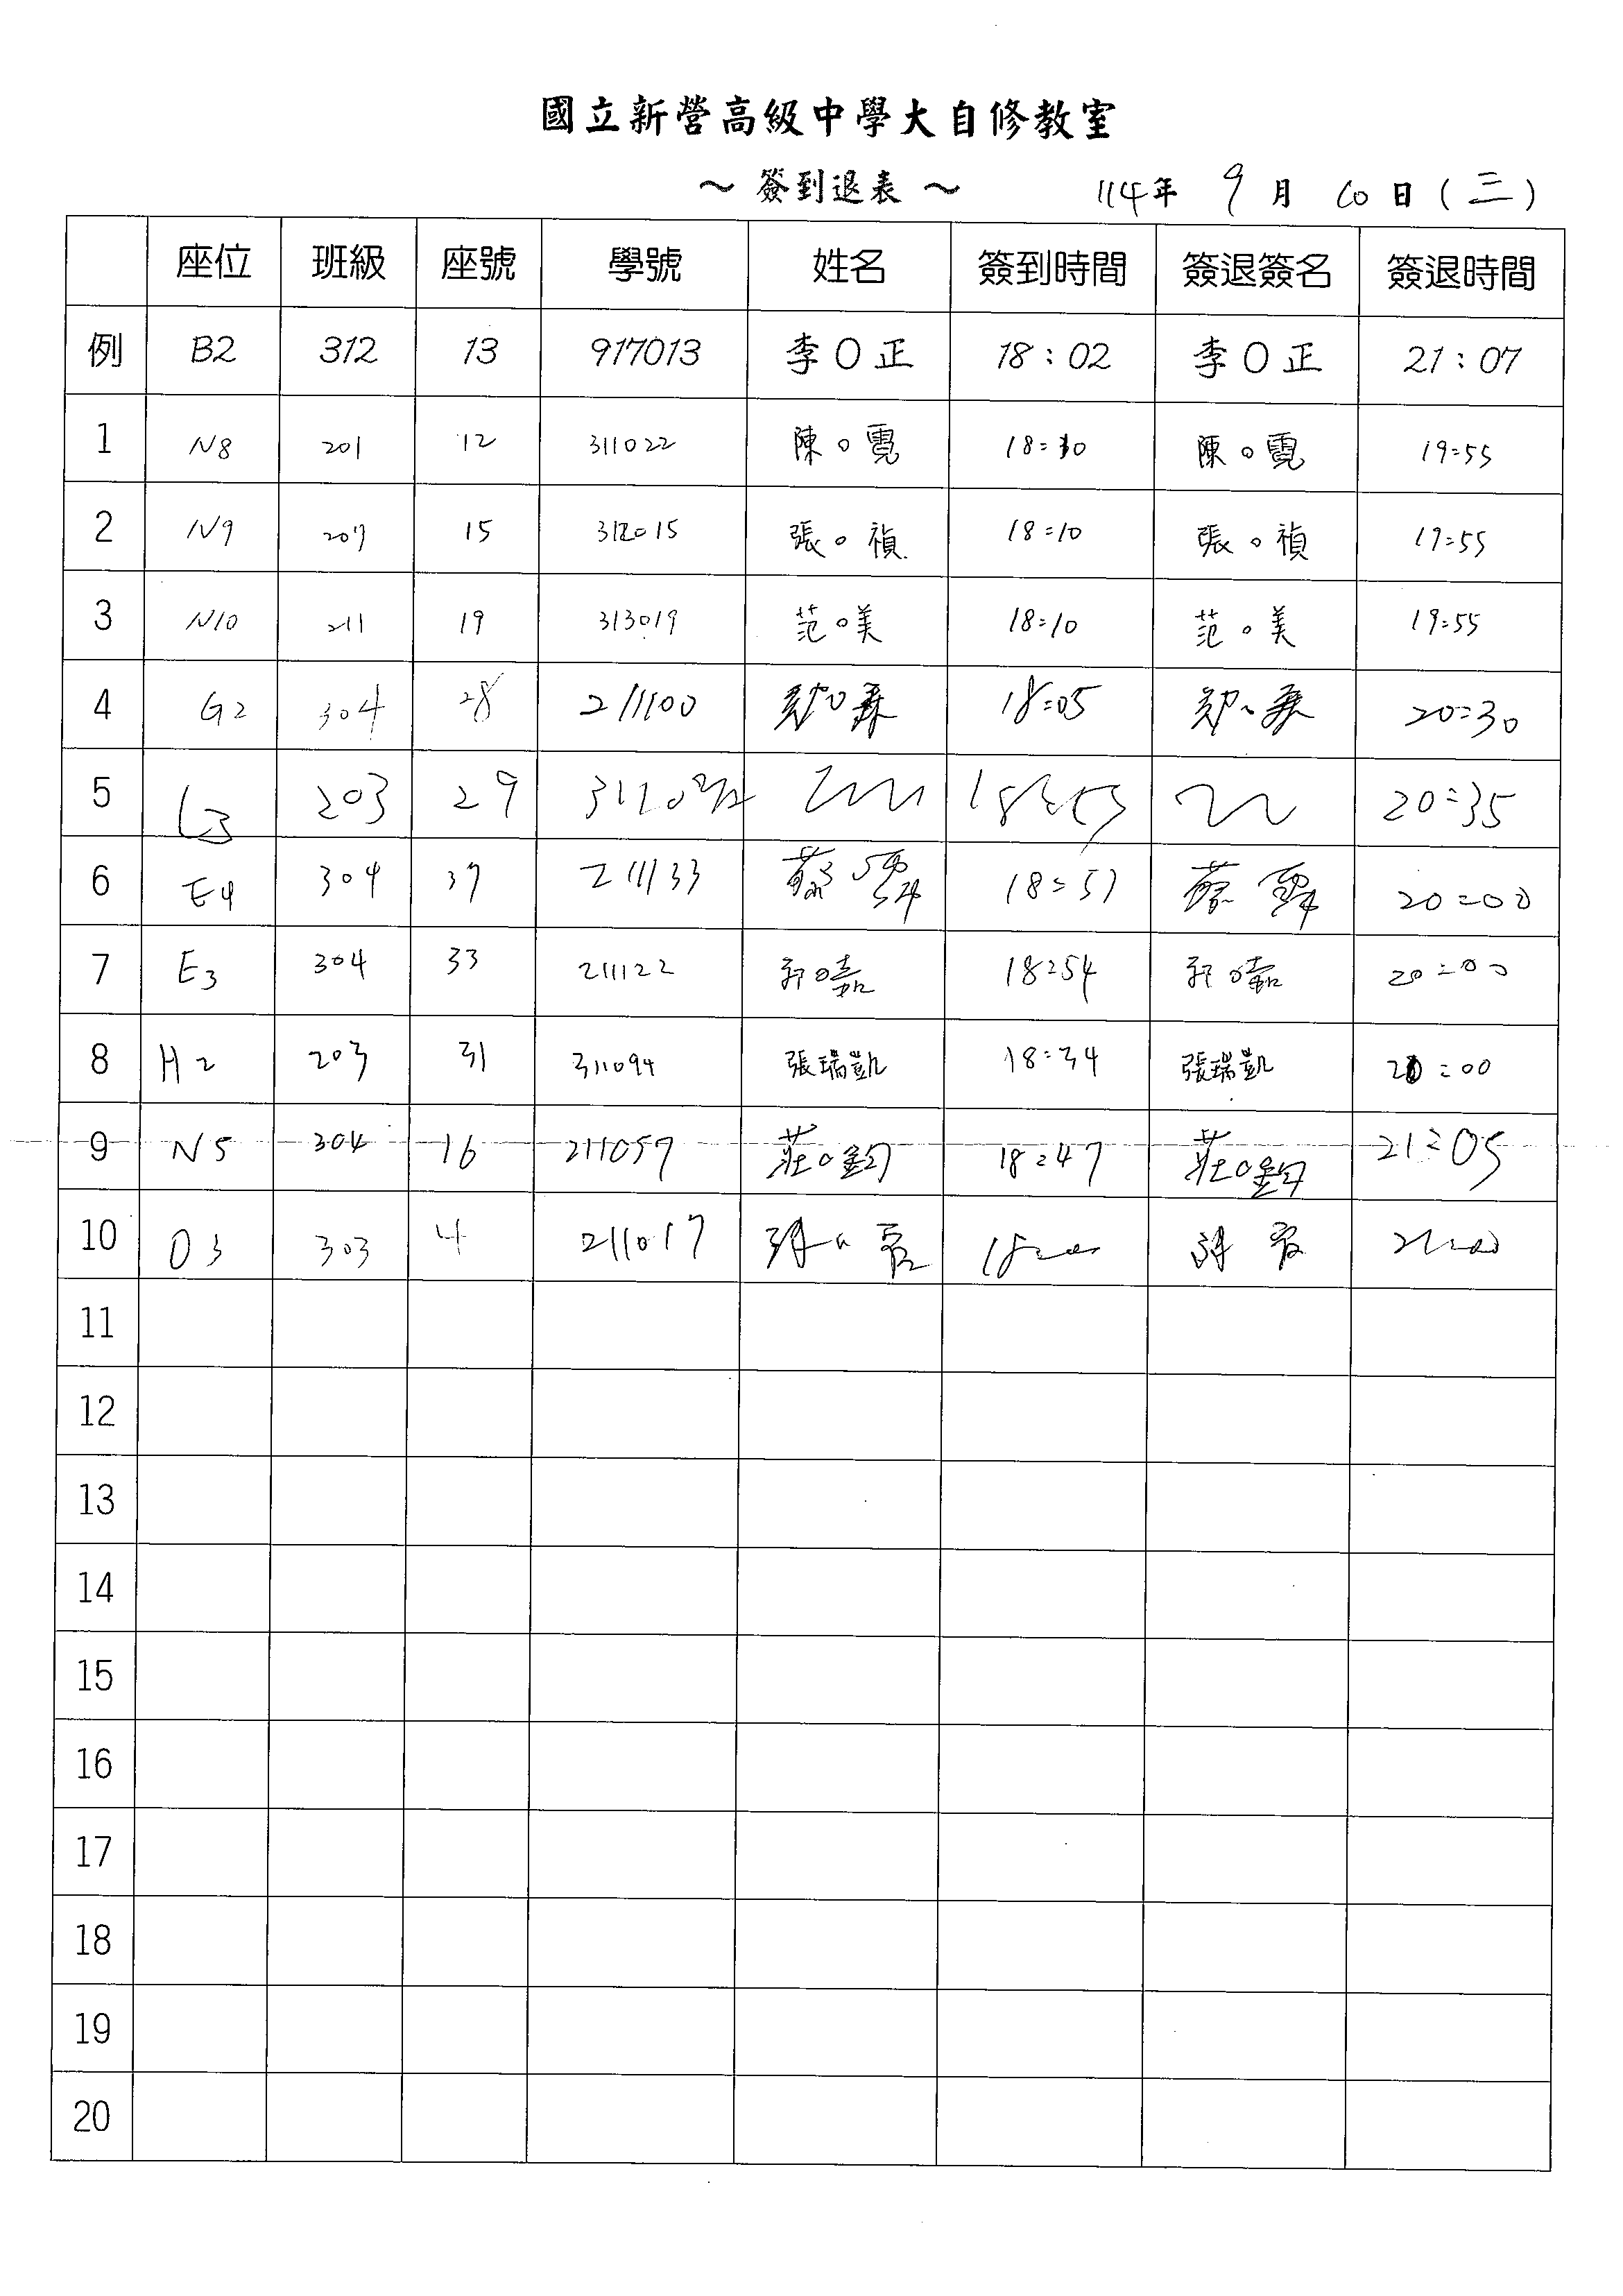 國立新營高級中學大自修教室
～ 簽到退表 ～ 114年 9 月 10 日 ( 三 )
座位 班級 座號 學號 姓名 簽到時間 簽退簽名 簽退時間
例 B2 312 13 917013 李O正 18:02 李O正 21:07
1 N8 201 12 311022 陳o霓 18:10 陳o霓 19:55
2 N9 207 15 312015 張o禎 18:10 張o禎 19:55
3 N10 211 19 313019 范o美 18:10 范o美 19:55
4 G2 304 28 211100 18:05 20:30
5 L3 203 29 20:35
6 E4 304 37 211133 蔡 18:57 蔡 20:00
7 E3 304 33 211122 18:54 20:00
8 H2 203 31 311094 張瑞凱 18:34 張瑞凱 20:00
9 N5 304 16 211057 莊o鈞 18:47 莊o鈞 21:05
10 O3 303 4 211017
11
12
13
14
15
16
17
18
19
20